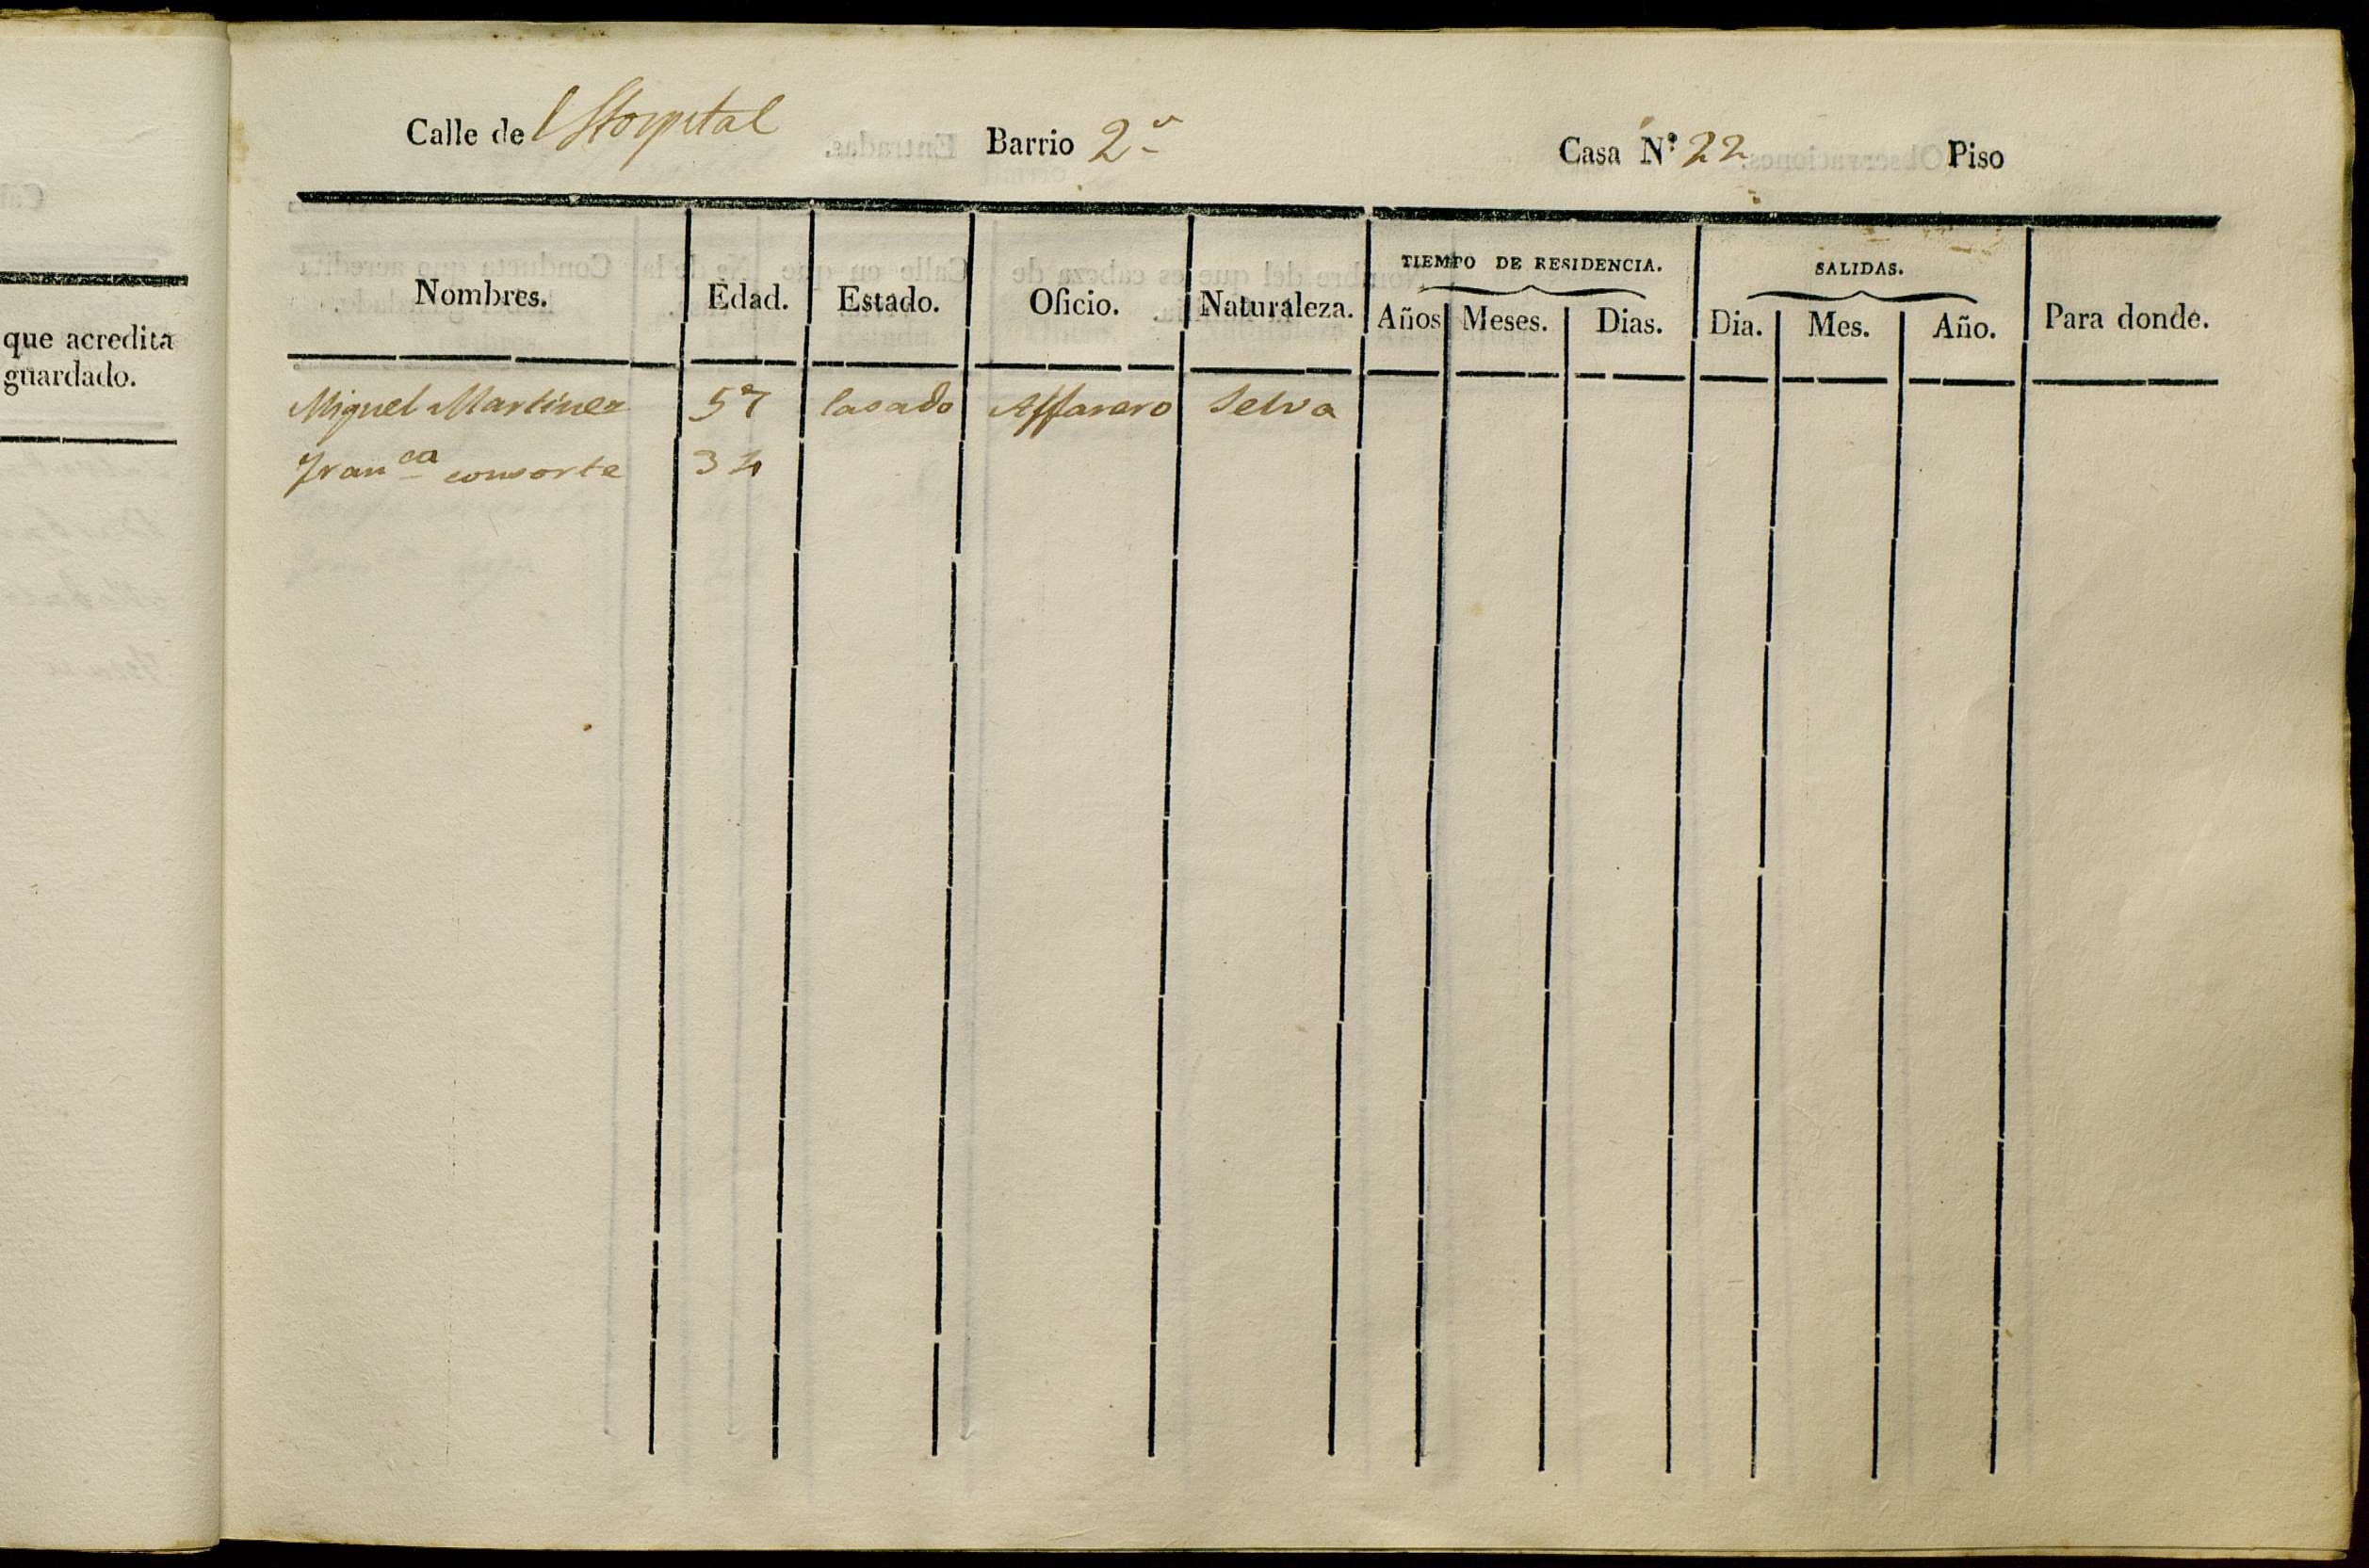 que acredita
guardado.
Calle del Hospital Barrio 2º Casa Nº 22 Piso
Nombres. Edad. Estado. Oficio. Naturaleza. TIEMPO DE RESIDENCIA. Años Meses. Dias. SALIDAS. Dia. Mes. Año. Para donde.
Miguel Martinez 57 Casado Alfarero Selva
Franca consorte 34